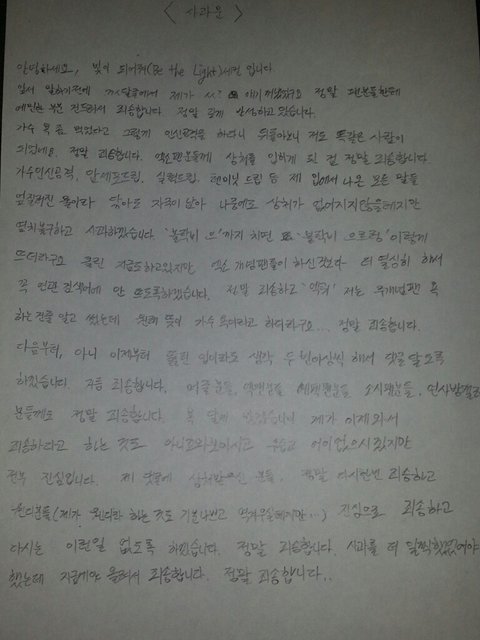 < 사과문 >
안녕하세요, 빛이 되어줘(Be the Light)세런 입니다
앞서 말하기전에 제가 정말 팬분들한테
예민한 부분 건드려서 죄송합니다 정말 깊게 반성하고 있습니다.
가수 욕좀 먹었다고 그렇게 인신공격을 하다니 뒤돌아보니 저도 똑같은 사람이
되었네요. 정말 죄송합니다. 엑소팬분들께 상처를 입히게 된 점 정말 죄송합니다
가수인신공격, 만세드립, 실력드립, 텐미닛 드립 등 제 입에서 나온 모든 말들
엎질러진 물이라 닦아도 자국이 남아 나중에도 상처가 없어지지않을테지만
염치불구하고 사과하겠습니다 까지 치면 이렇게
뜨더라구요 클린 지금도하고있지만 엑소 개념팬들이 하신것보다 더 열심히 해서
꼭 연관 검색어에 안 뜨도록하겠습니다. 정말 죄송하고 저는 무개념팬 욕
하는건줄 알고 썼는데 원래 뜻이 가수 욕이라고 하더라구요... 정말 죄송합니다.
다음부터, 아니 이제부터 뚫린 입이라도 생각 두 번이상씩 해서 댓글 달도록
하겠습니다 지금 죄송합니다. 머글분들, 엑팬분들 소시팬분들,
분들께도 정말 죄송합니다. 제가 이제와서
죄송하다고 하는 것도 아니꼬와보이시고 우습고 어이없으시겠지만
전부 진심입니다. 제 댓글에 상처받으신 분들, 정말 다시한번 죄송하고
원더분들(제가 원더라 하는 것도 기분나쁘고 역겨우실테지만...) 진심으로 죄송하고
다시는 이런일 없도록 하겠습니다. 정말 죄송합니다. 사과를 더 일찍했었어야
했는데 지금에야 올려서 죄송합니다. 정말 죄송합니다..